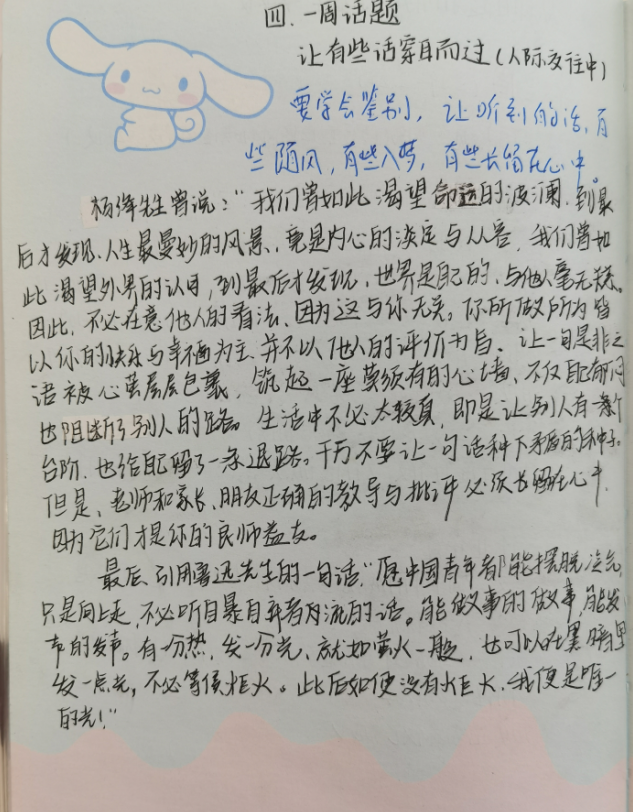 四.一周话题
让有些话穿耳而过(人际交往中)
要学会鉴别,让听到的话,有
些随风,有些入梦,有些长留在心中。
杨绛先生曾说:“我们曾如此渴望命运的波澜,到最
后才发现,人生最曼妙的风景,竟是内心的淡定与从容,我们曾如
此渴望外界的认可,到最后才发现,世界是自己的,与他人毫无关系。
因此,不必在意他人的看法、因为这与你无关。你所做所为皆
以你的快乐与幸福为主、并不以他人的评价为旨、让一句是非之
语被心茧层层包裹,筑起一座莫须有的心墙、不仅自己郁闷
也阻断了别人的路。生活中不必太较真,即是让别人有一个
台阶,也给自己留了一条退路。千万不要让一句话种下矛盾的种子。
但是、老师和家长、朋友正确的教导与批评必须长留在心中,
因为它们才是你的良师益友。
最后,引用鲁迅先生的一句话,“愿中国青年都能摆脱冷气,
只是向上走,不必听自暴自弃者之流的话。能做事的做事,能发
声的发声。有一分热,发一分光、就如萤火一般,也可以在黑暗里
发一点光,不必等候炬火。此后如使没有炬火、我便是唯一
的光!”